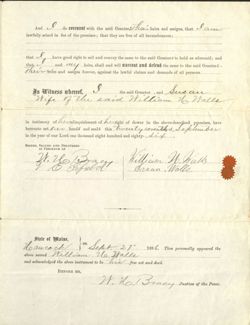 And I do covenant with the said Grantee, his heirs and assigns, that I am
lawfully seized in fee of the premises; that they are free of all incumbrances;
that I have good right to sell and convey the same to the said Grantee to hold as aforesaid; and
that I and my heirs, shall and will warrant and defend the same to the said Grantee
heirs and assigns forever, against the lawful claims and demands of all persons.
In Witness whereof, I the said Grantor, and Susan
Wife of the said William W. Walls
in testimony of her relinquishment of her right of dower in the above-described premises, have
hereunto set hand and seal this September
in the year of our Lord one thousand eight hundred and eighty six.
SIGNED, SEALED AND DELIVERED
IN PRESENCE OF
William W. Walls
Susan Walls
State of Maine,
Hancock Sept 27 1886. Then personally appeared the
above named William W. Walls
and acknowledged the above instrument to be his free act and deed.
BEFORE ME,
Justice of the Peace.